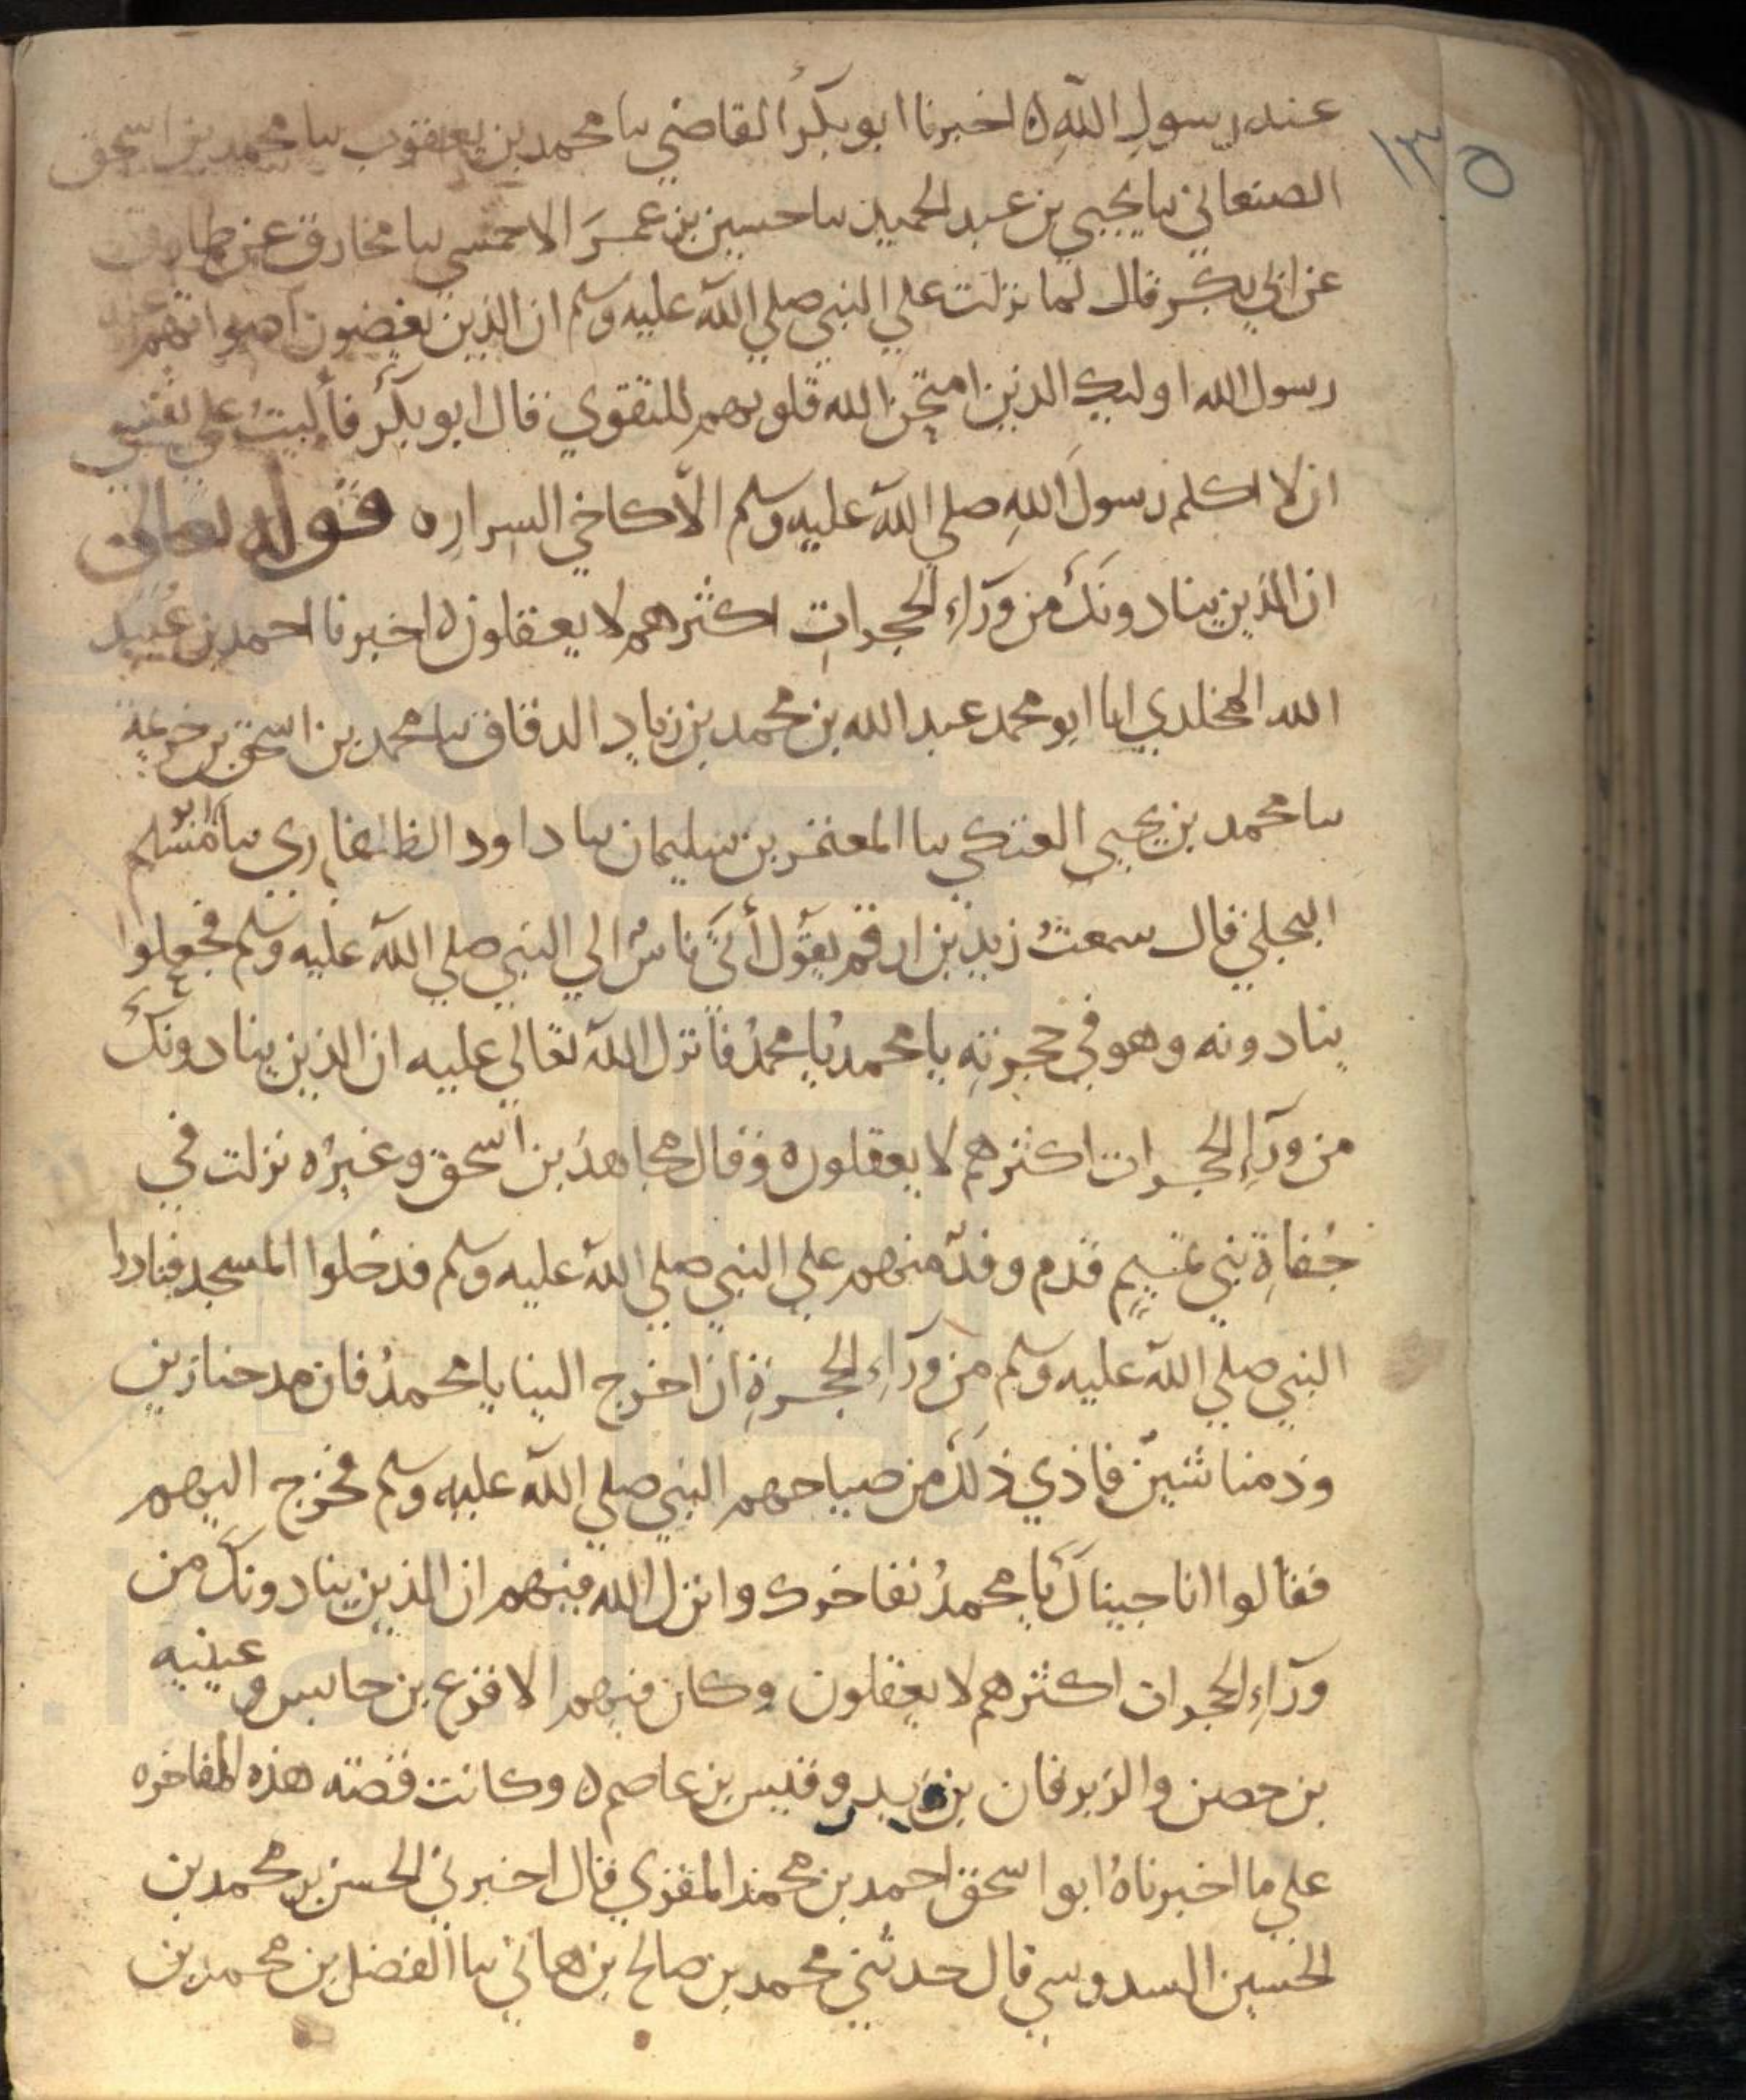 ١٣٥
عند رسول الله ه اخبرنا ابو بكر القاضي سا محمد بن يعقوب سا محمد بن اسحق
الصنعاني سا يحيى بن عبد الحميد سا حسين بن عمر الاحمسي سا مخارق عن طارق
عن ابي بكر قال لما نزلت علي النبي صلي الله عليه وسلم ان الذين يغضون اصواتهم عند
رسول الله اوليك الذين امتحن الله قلوبهم للتقوي قال ابو بكر فأليت علي نفسي
ان لا اكلم رسول الله صلي الله عليه وسلم الا كاخي السرار ه قوله تعالى
ان الذين ينادونك من ورآء الحجرات اكثرهم لا يعقلون ه اخبرنا احمد بن عبيد
الله المخلدي ابا ابو محمد عبد الله بن محمد بن زياد الدقاق سا محمد بن اسحق بن خزيمة
سا محمد بن يحيى العتكي سا المعتمر بن سليمان سا داود الطفاري سا ابو مسلم
البجلي قال سمعت زيد بن ارقم يقول أتى ناس الي النبي صلي الله عليه وسلم فجعلوا
ينادونه وهو في حجرته يا محمد يا محمد فانزل الله تعالي عليه ان الذين ينادونك
من ورآء الحجرات اكثرهم لا يعقلون ه وقال مجاهد بن اسحق وغيره نزلت في
جفاة بني تميم قدم وفد منهم علي النبي صلي الله عليه وسلم فدخلوا المسجد فنادوا
النبي صلي الله عليه وسلم من ورآء الحجرة ان اخرج الينا يا محمد فان مدحنا زين
وذمنا شين فاذي ذلك من صياحهم النبي صلي الله عليه وسلم فخرج اليهم
فقالوا انا جيناك يا محمد نفاخرك وانزل الله فيهم ان الذين ينادونك من
ورآء الحجرات اكثرهم لا يعقلون وكان فيهم الاقرع بن حابس وعيينه
بن حصن والزبرقان بن بدر وقيس بن عاصم ه وكانت قصته هذه المفاخره
علي ما اخبرناه ابو اسحق احمد بن محمد المقري قال اخبرني الحسن بن محمد بن
الحسين السدوسي قال حدثني محمد بن صالح بن هاني سا الفضل بن محمد بن